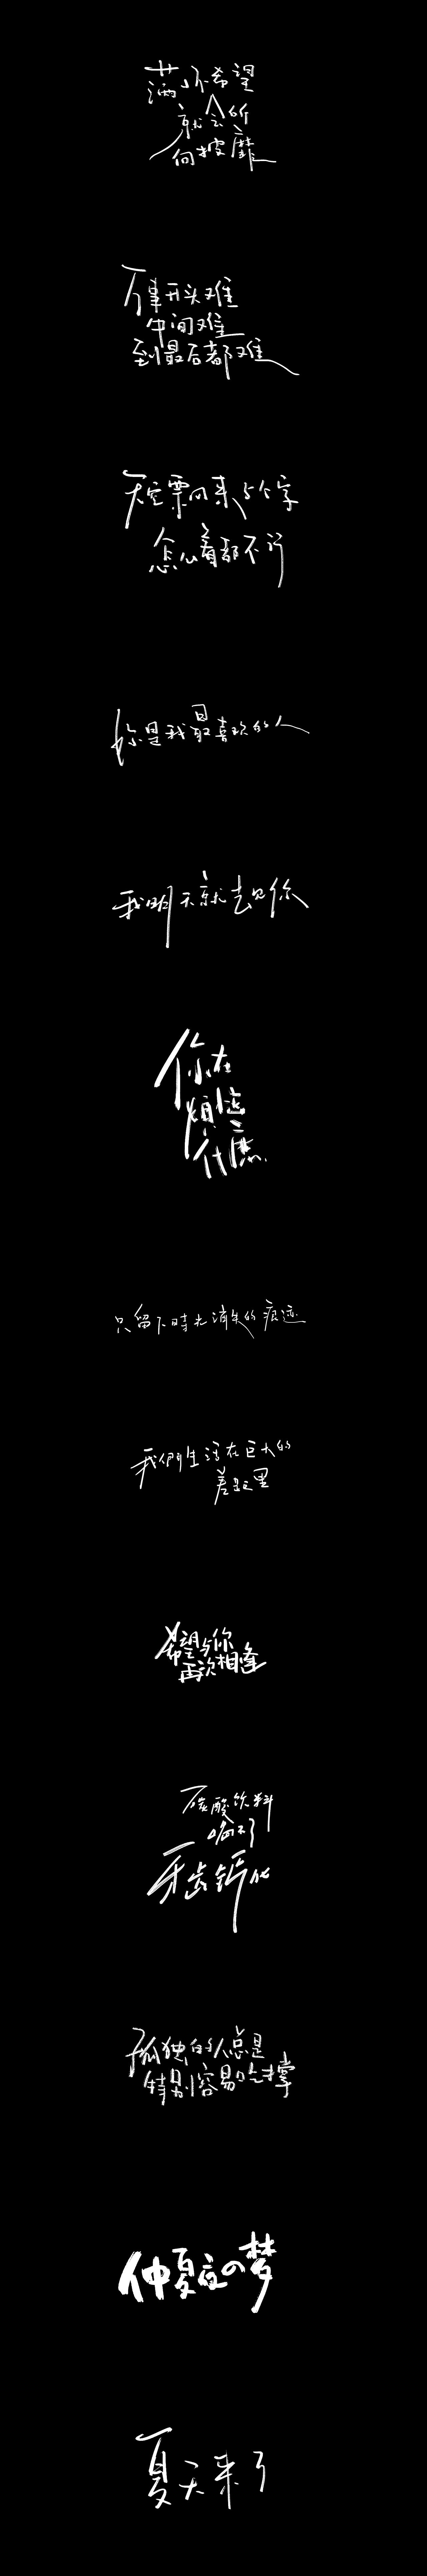 满怀希望
就会所
向披靡
万事开头难
中间难
到最后都难
天空飘来5个字
怎么着都不行
你是我最喜欢的人
我明天就去见你
你在
煩惱
什麽
只留下時光消失的痕迹
我們生活在巨大的
差距里
希望与你
再次相逢
碳酸饮料
喝不了
牙齿鈣化
孤独的人总是
特别容易吃撑
仲夏夜の梦
夏天来了